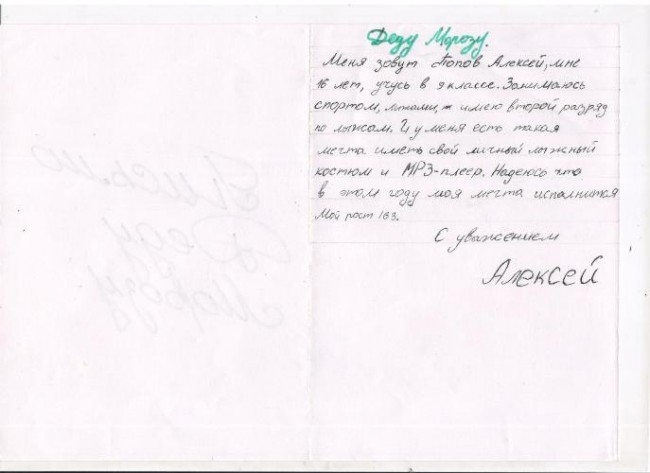 Деду Морозу.
Меня зовут Попов Алексей, мне
16 лет, учусь в 9 классе. Занимаюсь
спортом, лыжами, имею второй разряд
по лыжам. И у меня есть такая
мечта иметь свой личный лыжный
костюм и MP3-плеер. Надеюсь что
в этом году моя мечта исполнится
Мой рост 163.
С уважением
Алексей
Письмо
Деду
Морозу